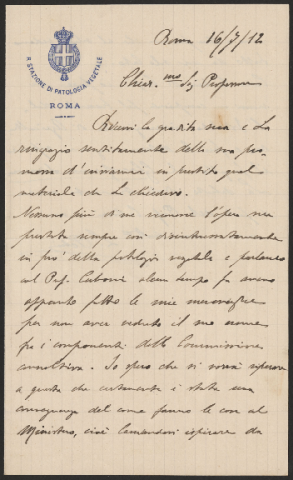 R. STAZIONE DI PATOLOGIA VEGETALE
ROMA
Roma 16/7/12
Chiar.mo Sig. Professore
Ricevo la gradita sua e La
ringrazio sentitamente della sua pro-
messa d'inviarmi in prestito quel
materiale che Le chiedevo.
Nessuno più di me riconosce l'opera sua
prestata sempre così disinteressatamente
in pro' della patologia vegetale e parlando
col Prof. Cuboni alcun tempo fa avevo
appunto fatto le mie meraviglie
per non aver veduto il suo nome
fra i componenti della Commissione
consultiva. Io spero che si vorrà riparare
a questa che certamente è stata una
conseguenza del come fanno le cose al
Ministero, cioè lasciandosi ispirare da